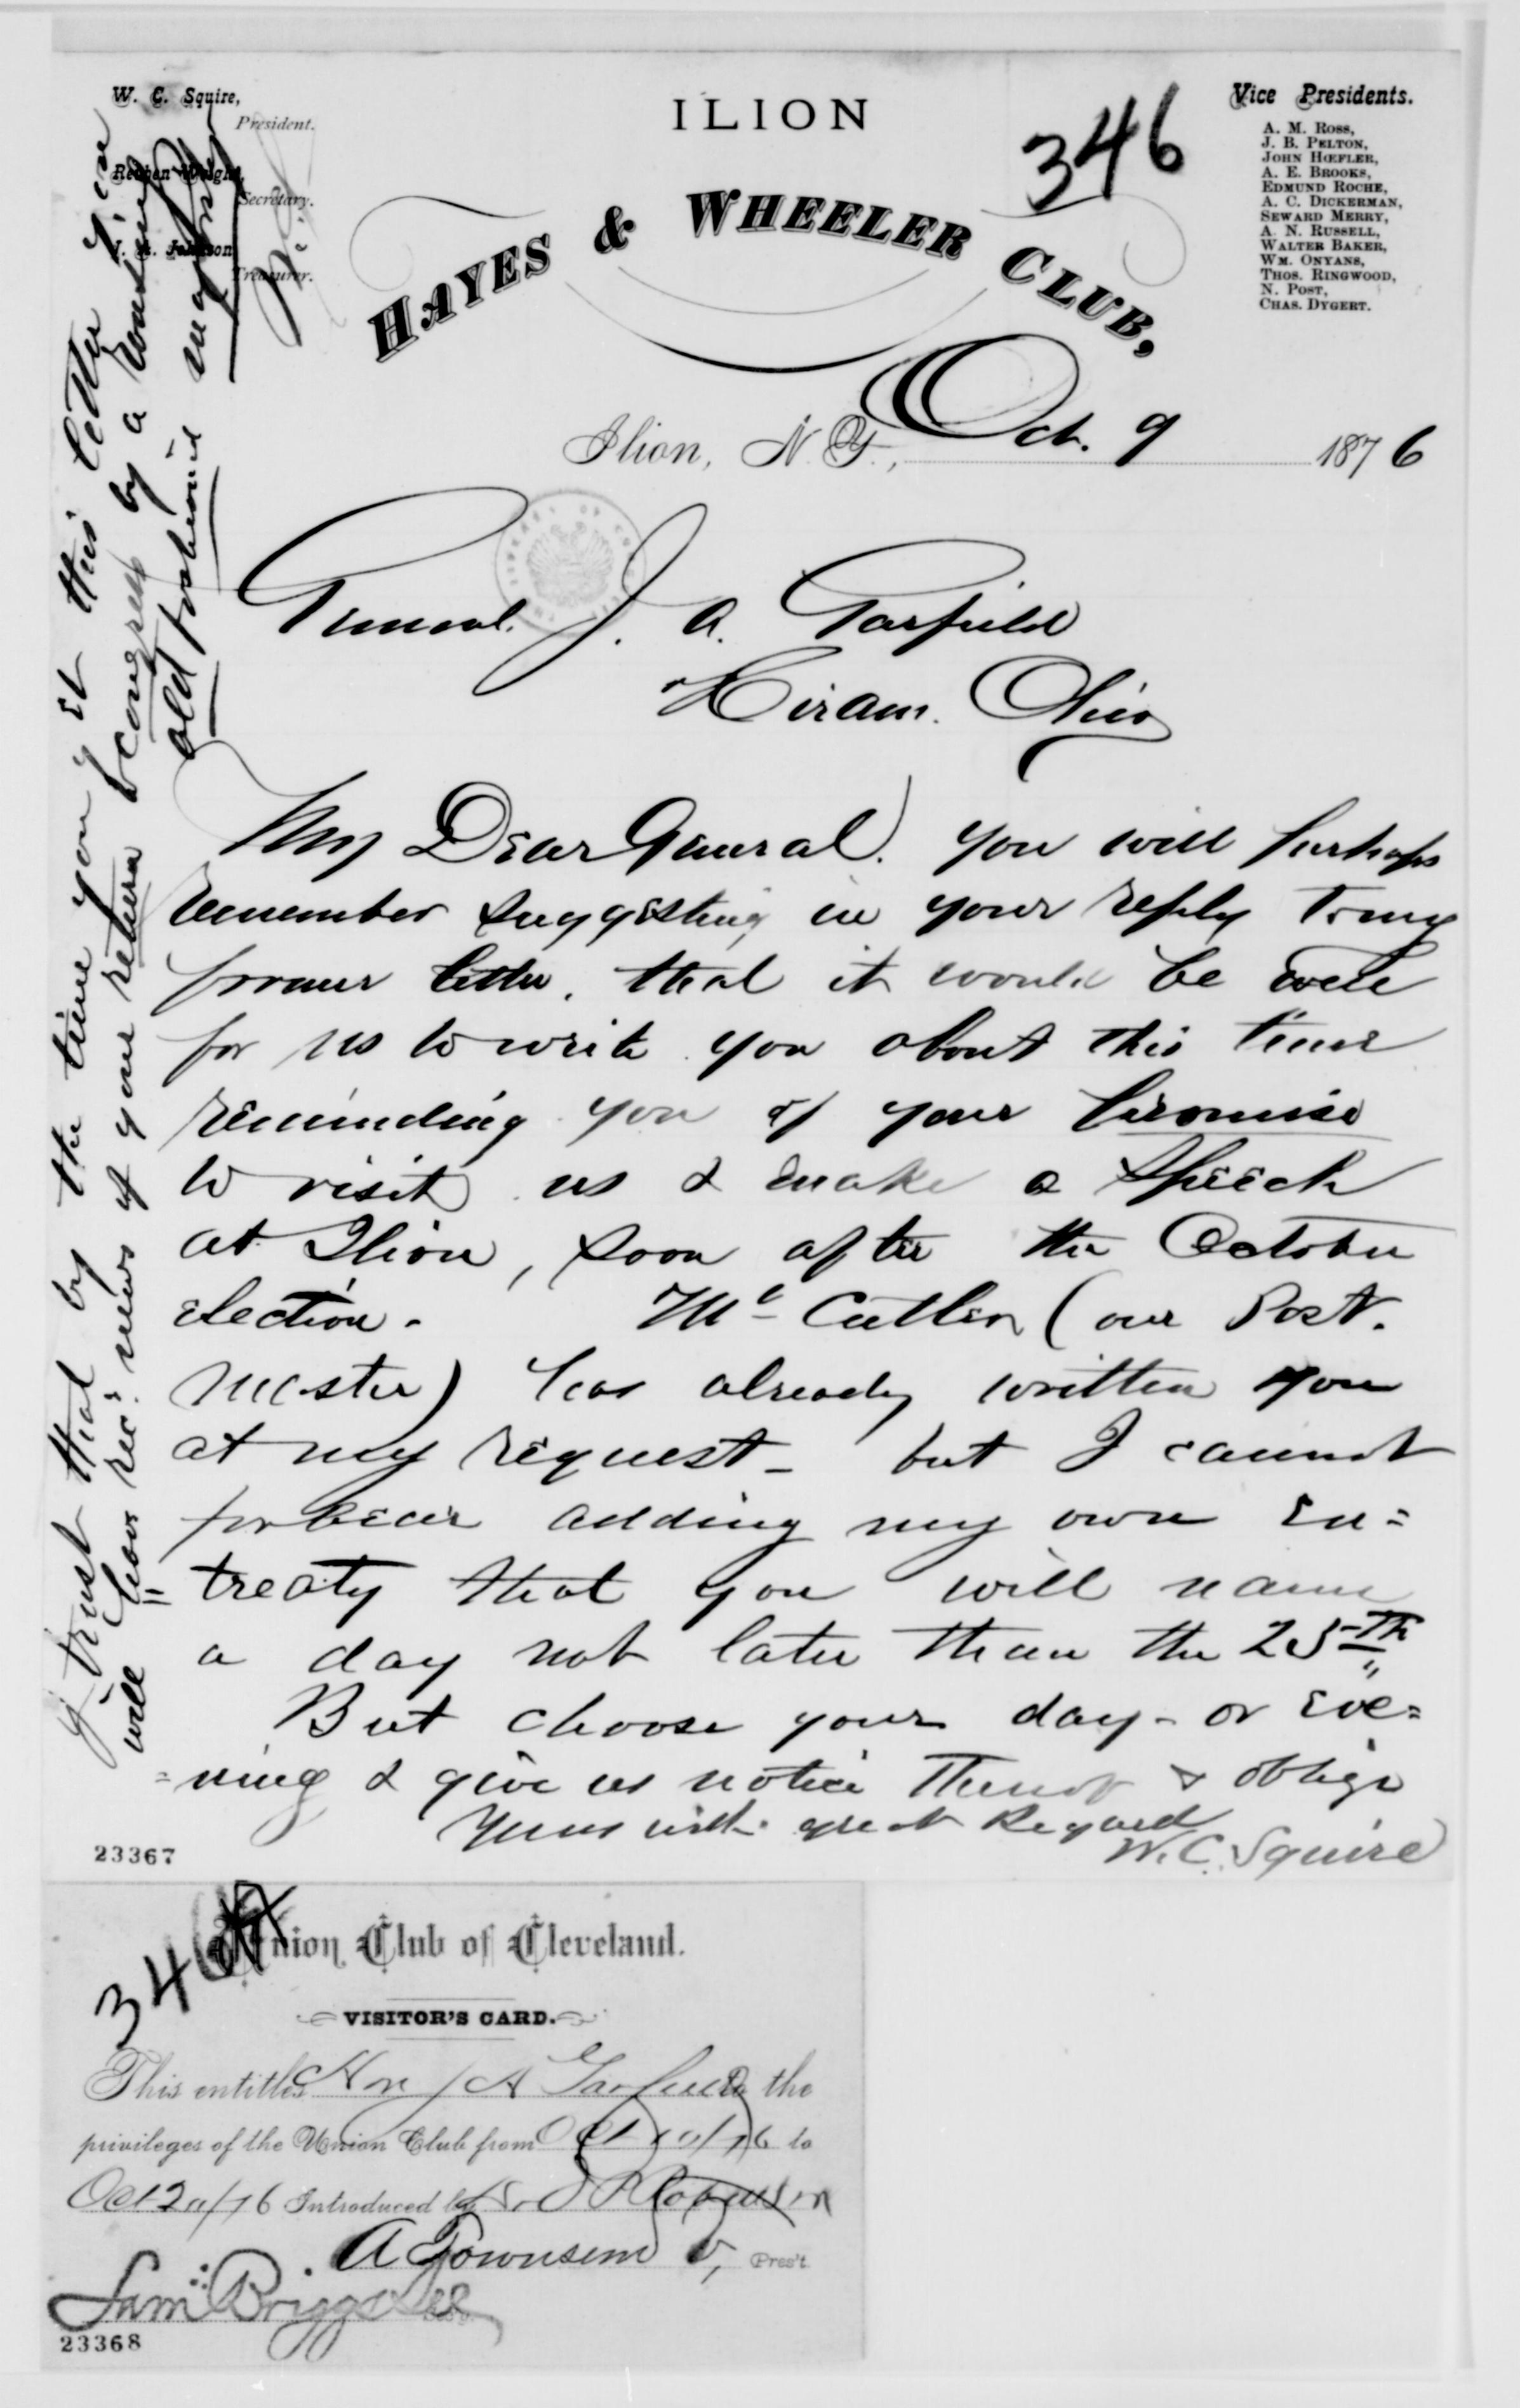 W. C. Squire,
President.
Reuben Wright,
Secretary.
Johnson
Treasurer.
ILION
HAYES & WHEELER CLUB,
346
Vice Presidents.
A. M. ROSS,
J. B. PELTON,
JOHN HŒFLER,
A. E. BROOKS,
EDMUND ROCHE,
A. C. DICKERMAN,
SEWARD MERRY,
A. N. RUSSELL,
WALTER BAKER,
WM. ONYANS,
THOS. RINGWOOD,
N. POST,
CHAS. DYGERT.
Ilion, N. Y., Oct. 9 1876
General. J. A. Garfield
Hiram. Ohio
My Dear General. you will perhaps
remember suggesting in your reply to my
former letter, that it would be well
for us to write you about this time
reminding you of your promise
to visit us & make a speech
at Ilion, soon after the October
election. - Mc Cutler (our Post.
master) has already written you
at my request - but I cannot
forbear adding my own en=
treaty that you will name
a day not later than the 25th
But choose your day - or eve=
=ning & give us notice thereof & oblige
Yours with great Regard
W. C. Squire
I trust that by the time you get this letter you
will have rec'd news of your return to congress by a rousing
old fashioned majority
23367
346
Union Club of Cleveland.
VISITOR'S CARD.
This entitles Hon J A Garfield to the
privileges of the Union Club from Oct 10/76 to
Oct 20/76 Introduced by
A Townsend V, Pres't
Sam Briggs Sec
23368